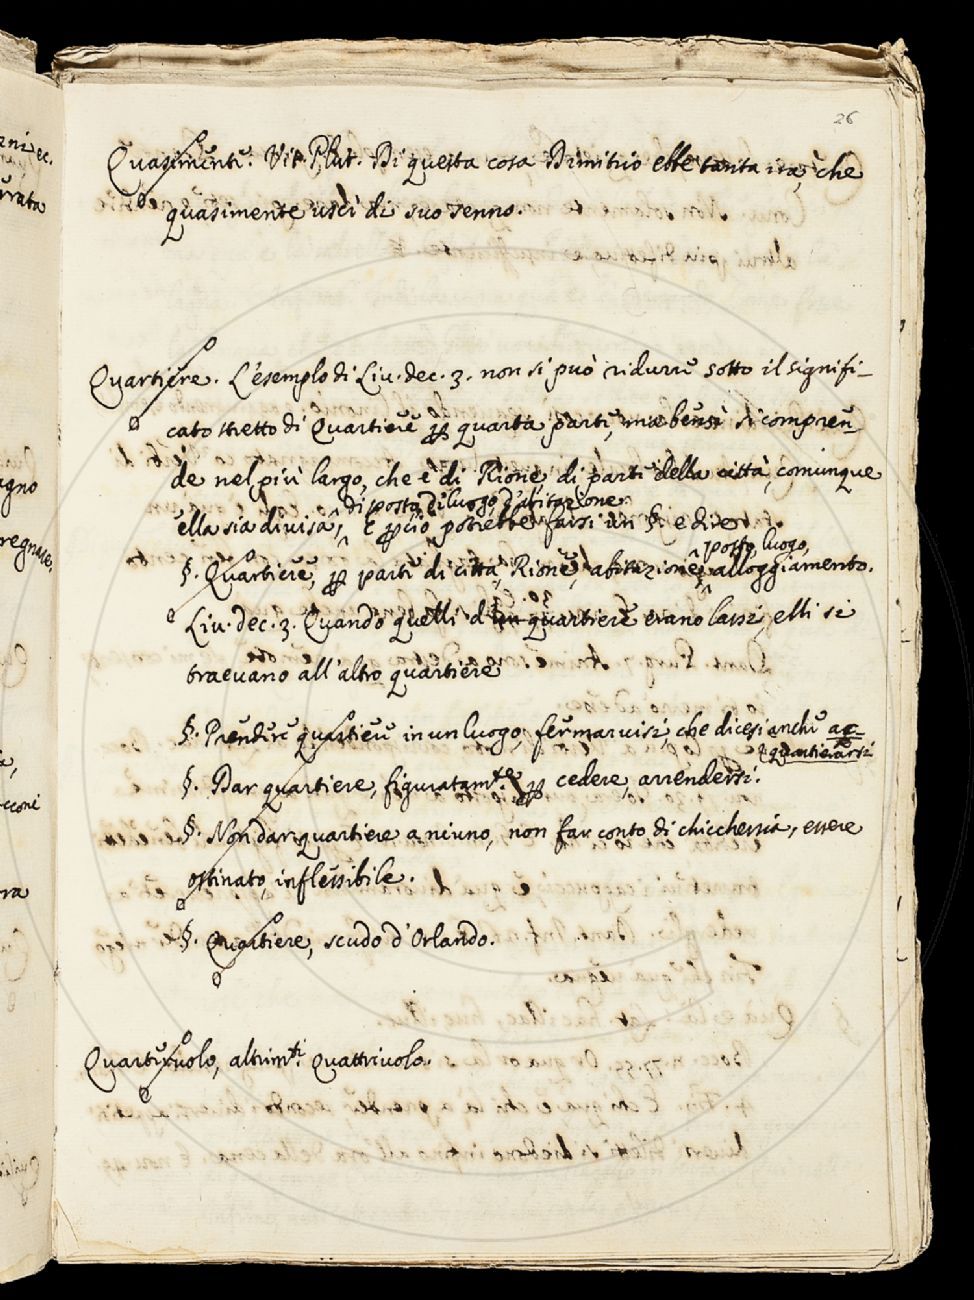 26
Quasimente. Vit. Plut. Di questa cosa Dimitrio ebbe tanta ira, che
quasimente uscì di suo senno.
Quartiere. L'esemplo di Liv. dec. 3. non si può ridurre sotto il signifi-
cato stretto di Quartiere per quarta parte, ma bensì si compren-
de nel più largo, che è di Rione, di parte della città, comunque
di posta, di luogo, d'abitazione
ella sia divisa, E perciò potrebbe farsi un §. e dire
posto, luogo,
§. Quartiere, per parte di città, Rione, abitazione, alloggiamento.
Liv. dec. 3. Quando quelli d'un quartiere erano lassi, elli si
traevano all'altro quartiere
§. Prendere quartiere in un luogo, fermarvisi, che dicesi anche ac-
quartierarsi
§. Dar quartiere, figuratamte. per cedere, arrendersi.
§. Non dar quartiere a niuno, non far conto di chicchessia, essere
ostinato, inflessibile.
§. Quartiere, scudo d'Orlando.
Quarteruolo, altrimti Quattrivolo.
ec.
rrata
agno
regnare,
cconi
ra